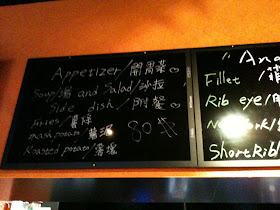 Appetizer/開胃菜
Soup/湯 and Salad/沙拉
Side dish/附餐
Fries/薯條
mash potato/薯泥
80
Roasted potato/薯塊
"An
Fillet /菲
Rib eye/肋
New York/
Short Rib/